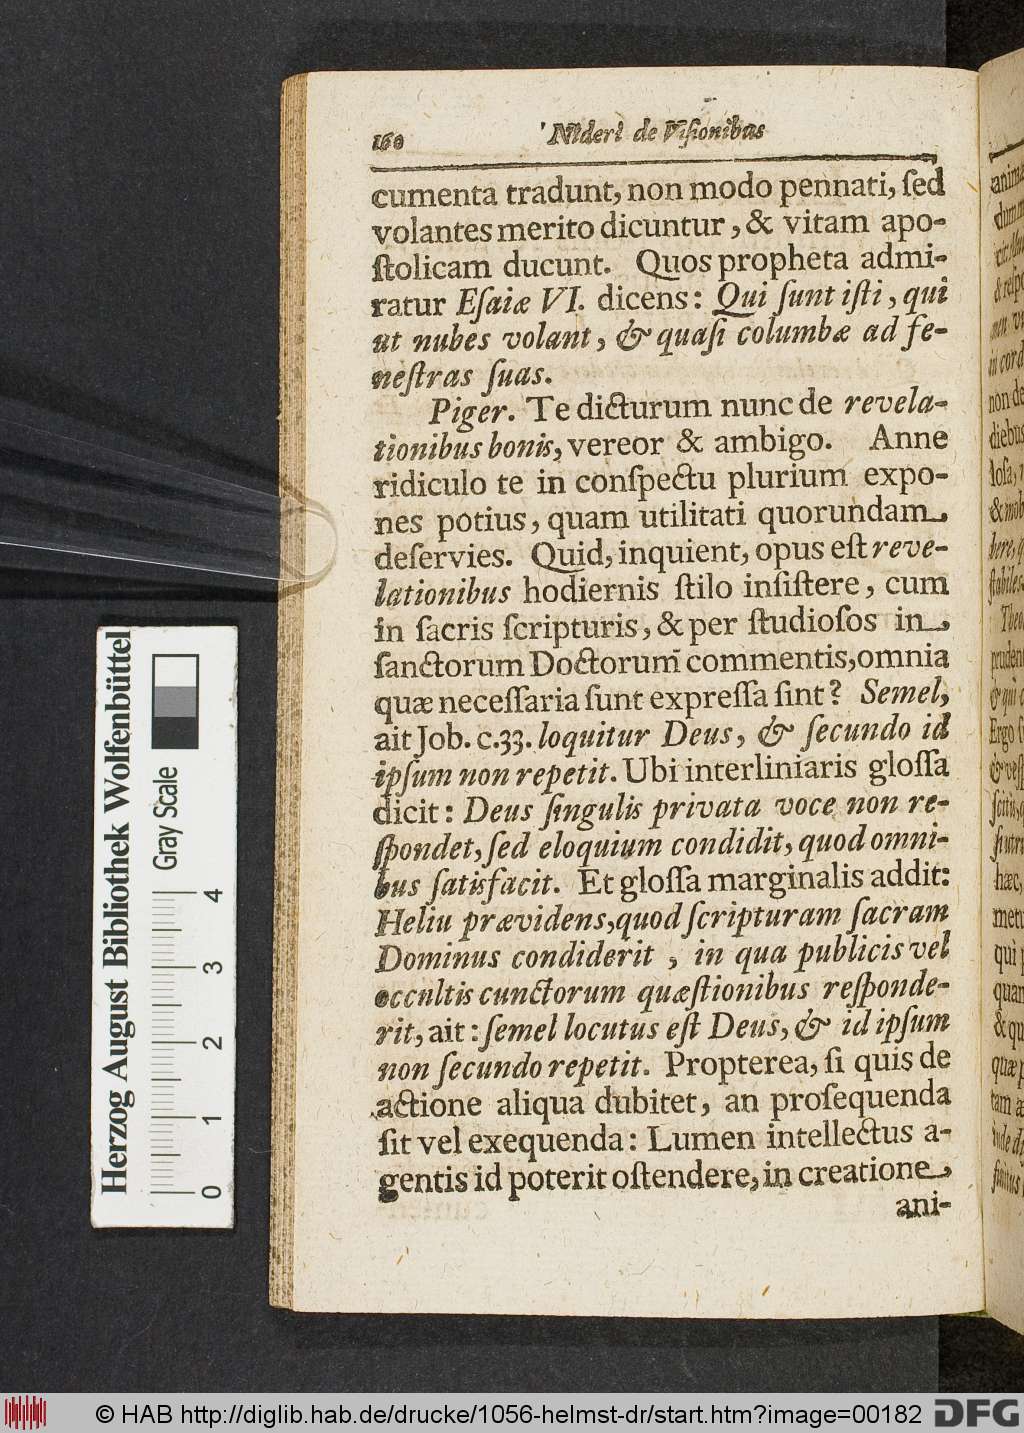 160 Nideri de Visionibus
cumenta tradunt, non modo pennati, ſed
volantes merito dicuntur, & vitam apo-
ſtolicam ducunt. Quos propheta admi-
ratur Eſaiæ VI. dicens: Qui ſunt iſti, qui
ut nubes volant, & quaſi columbæ ad fe-
neſtras ſuas.
Piger. Te dicturum nunc de revela-
tionibus bonis, vereor & ambigo. Anne
ridiculo te in conſpectu plurium expo-
nes potius, quam utilitati quorundam
deſervies. Quid, inquient, opus eſt reve-
lationibus hodiernis ſtilo inſiſtere, cum
in ſacris ſcripturis, & per ſtudioſos in
ſanctorum Doctorum commentis, omnia
quæ neceſſaria ſunt expreſſa ſint? Semel,
ait Job. c.33. loquitur Deus, & ſecundo id
ipſum non repetit. Ubi interliniaris gloſſa
dicit: Deus ſingulis privata voce non re-
ſpondet, ſed eloquium condidit, quod omni-
bus ſatisfacit. Et gloſſa marginalis addit:
Heliu prævidens, quod ſcripturam ſacram
Dominus condiderit, in qua publicis vel
occultis cunctorum quæſtionibus reſponde-
rit, ait: ſemel locutus eſt Deus, & id ipſum
non ſecundo repetit. Propterea, ſi quis de
actione aliqua dubitet, an proſequenda
ſit vel exequenda: Lumen intellectus a-
gentis id poterit oſtendere, in creatione
ani-
Herzog August Bibliothek Wolfenbüttel
Gray Scale
0 1 2 3 4
© HAB http://diglib.hab.de/drucke/1056-helmst-dr/start.htm?image=00182 DFG